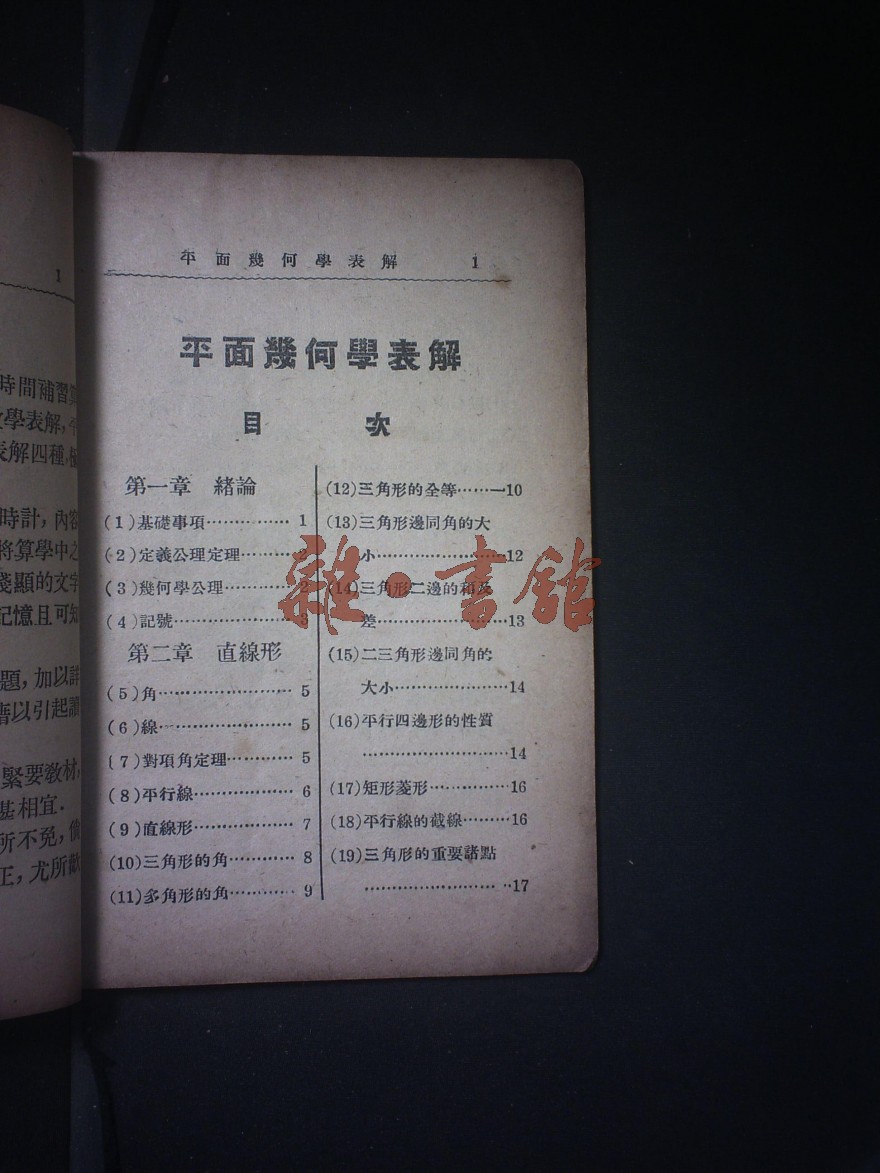 1
時間補習算
學表解,平
表解四種,
時計,內容
將算學中之
淺顯的文字
記憶且可知
題,加以詳
藉以引起讀
緊要教材,
甚相宜.
所不免,倘
正,尤所歡
平面幾何學表解 1
平面幾何學表解
目 次
第一章 緒論
(1)基礎事項…………… 1
(2)定義公理定理……… 2
(3)幾何學公理………… 2
(4)記號………………… 3
第二章 直線形
(5)角…………………… 5
(6)線…………………… 5
(7)對項角定理………… 5
(8)平行線……………… 6
(9)直線形……………… 7
(10)三角形的角………… 8
(11)多角形的角………… 9
(12)三角形的全等………10
(13)三角形邊同角的大
小……………………12
(14)三角形二邊的和及
差……………………13
(15)二三角形邊同角的
大小…………………14
(16)平行四邊形的性質
………………………14
(17)矩形菱形……………16
(18)平行線的截線………16
(19)三角形的重要諸點
………………………17
雜·書館